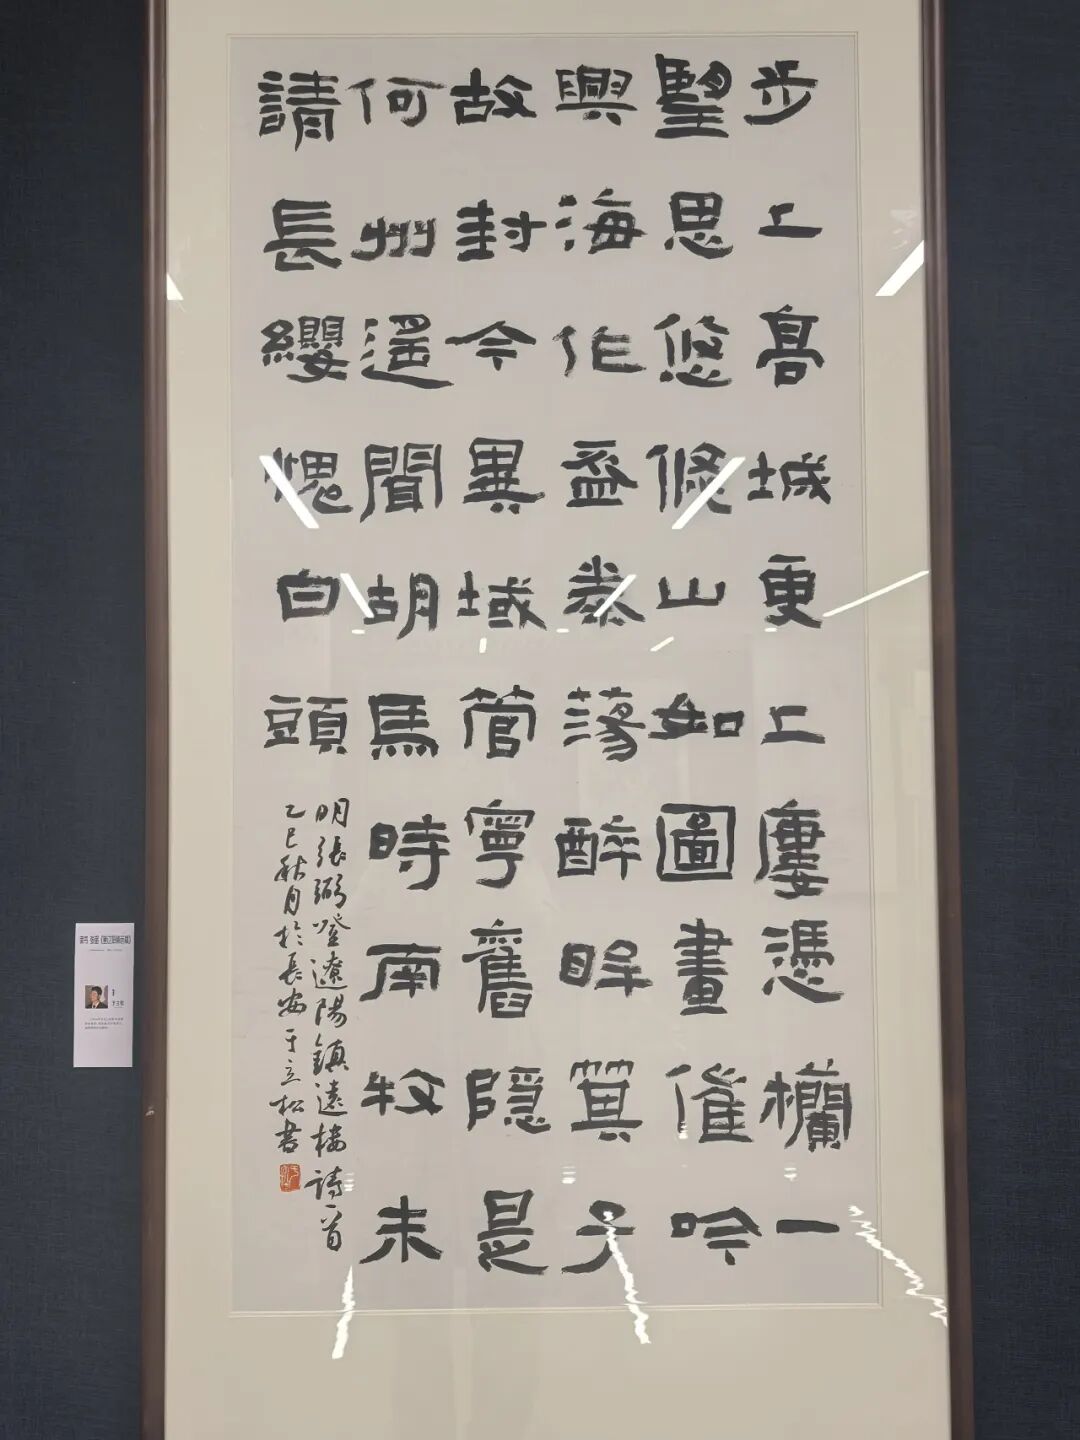 步上高城更上廔憑欄一
望思悠悠山如圖畫催吟
興海作盃桊蕩醉眸箕子
故封今異域管寧舊隱是
何州遥聞胡馬時南牧未
請長纓愧白頭
明張弼登遼陽鎮遠楼詩一首
乙巳秋月於長安于立松書